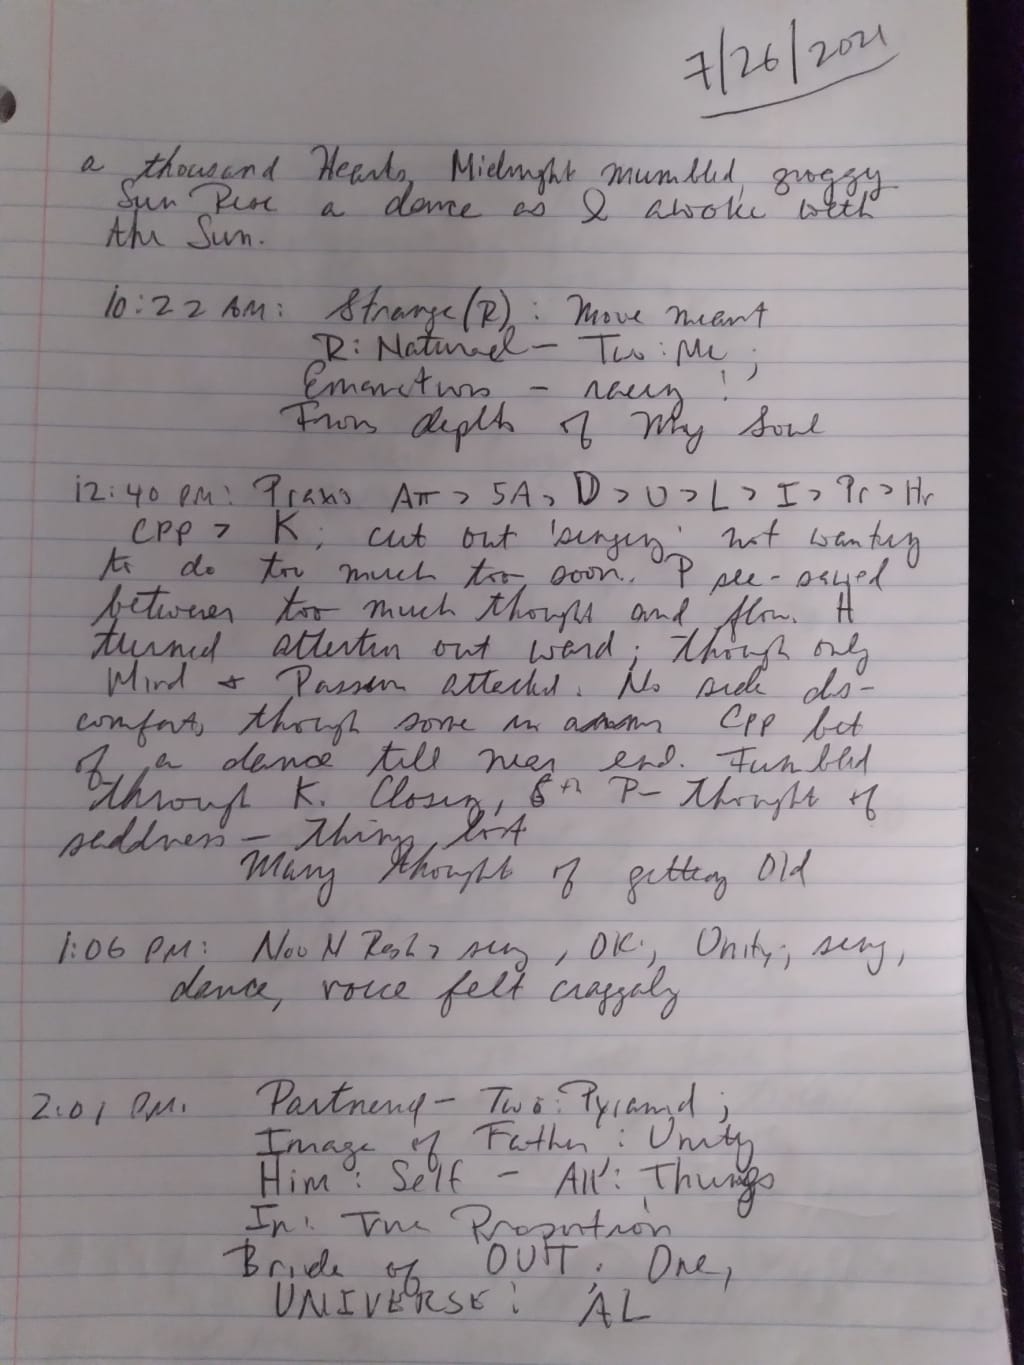 7/26/2021
a thousand Hearts, Midnight mumbled, groggy
Sun Rise a dance as I awoke with
the Sun.
10:22 AM: Strange (R): Move meant
R: Natural - Two: Me;
Emanations - racing!
From depth of My Soul
12:40 PM: Praxis Aπ > 5A > D > U > L > I > Pr > Hr
CPP > K; cut out 'singing' not wanting
to do too much too soon. P see-sawed
between too much thought and flow. H
turned attention out ward; though only
Mind & Passion attached. No side dis-
comfort, though some in CPP bit
of a dance till near end. Fumbled
through K. Closing, 5th P- thought of
saddness - things lost
Many thought of getting Old
1:06 PM: NooN Resh > sung, OK; Unity; sung,
dance, voice felt craggaly
2:01 PM: Partnering - Two: Pyramid;
Image of Father: Unity
Him: Self - All: Things
In: True Proportion
Bride of OUT: One,
UNIVERSE: AL